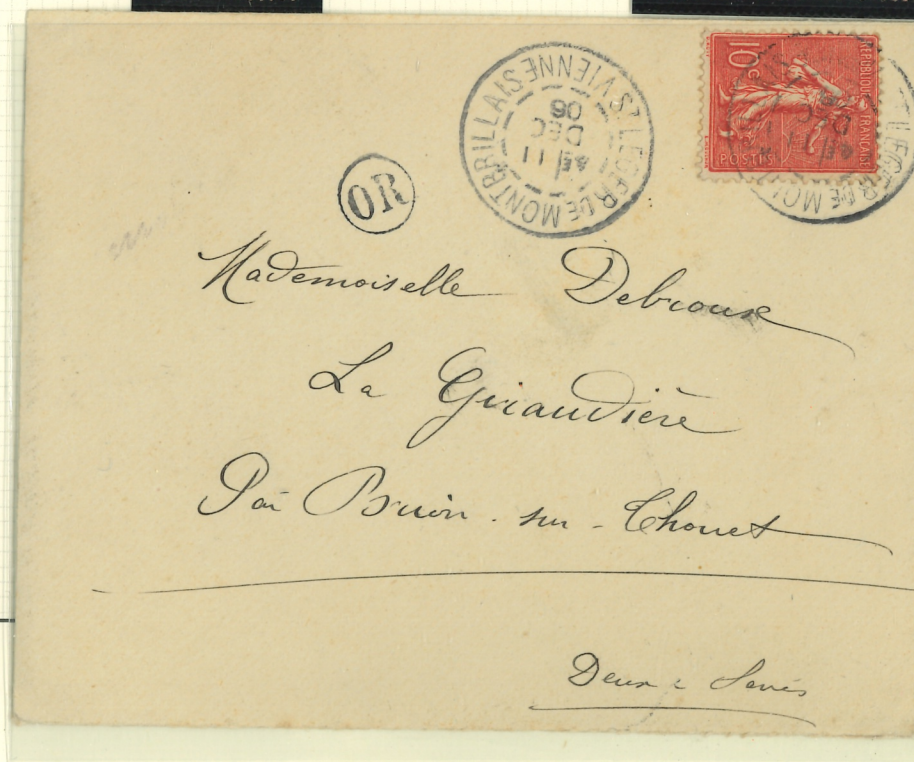 ST LEGER DE MONTBRILLAIS VIENNE
4E
11
DEC
06
10 C
REPUBLIQUE FRANCAISE
POSTES
OR
Mademoiselle Debroux
La Giraudière
Par Brion-sur-Thouet
Deux-Sèvres